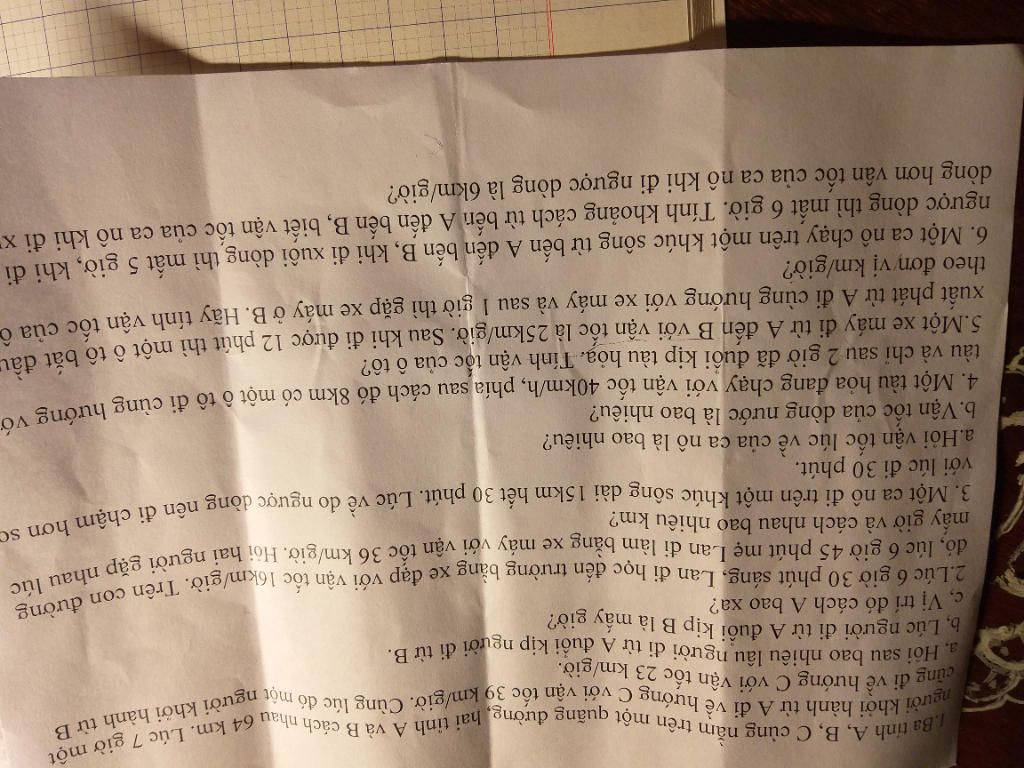 1.Ba tỉnh A, B, C cùng nằm trên một quãng đường, hai tỉnh A và B cách nhau 64 km. Lúc 7 giờ một
người khởi hành từ A đi về hướng C với vận tốc 39 km/giờ. Cùng lúc đó một người khởi hành từ B
cũng đi về hướng C với vận tốc 23 km/giờ.
a, Hỏi sau bao nhiêu lâu người đi từ A đuổi kịp người đi từ B.
b, Lúc người đi từ A đuổi kịp B là mấy giờ?
c, Vị trí đó cách A bao xa?
2.Lúc 6 giờ 30 phút sáng, Lan đi học đến trường bằng xe đạp với vận tốc 16km/giờ. Trên con đường
đó, lúc 6 giờ 45 phút mẹ Lan đi làm bằng xe máy với vận tốc 36 km/giờ. Hỏi hai người gặp nhau lúc
mấy giờ và cách nhau bao nhiêu km?
3. Một ca nô đi trên một khúc sông dài 15km hết 30 phút. Lúc về do ngược dòng nên đi chậm hơn so
với lúc đi 30 phút.
a.Hỏi vận tốc lúc về của ca nô là bao nhiêu?
b.Vận tốc của dòng nước là bao nhiêu?
4. Một tàu hỏa đang chạy với vận tốc 40km/h, phía sau cách đó 8km có một ô tô đi cùng hướng với
tàu và chỉ sau 2 giờ đã đuổi kịp tàu hỏa. Tính vận tốc của ô tô?
5.Một xe máy đi từ A đến B với vận tốc là 25km/giờ. Sau khi đi được 12 phút thì một ô tô bắt đầu
xuất phát từ A đi cùng hướng với xe máy và sau 1 giờ thì gặp xe máy ở B. Hãy tính vận tốc của ô
theo đơn vị km/giờ?
6. Một ca nô chạy trên một khúc sông từ bến A đến bến B, khi đi xuôi dòng thì mất 5 giờ, khi đi
ngược dòng thì mất 6 giờ. Tính khoảng cách từ bến A đến bến B, biết vận tốc của ca nô khi đi
dòng hơn vân tốc của ca nô khi đi ngược dòng là 6km/giờ?